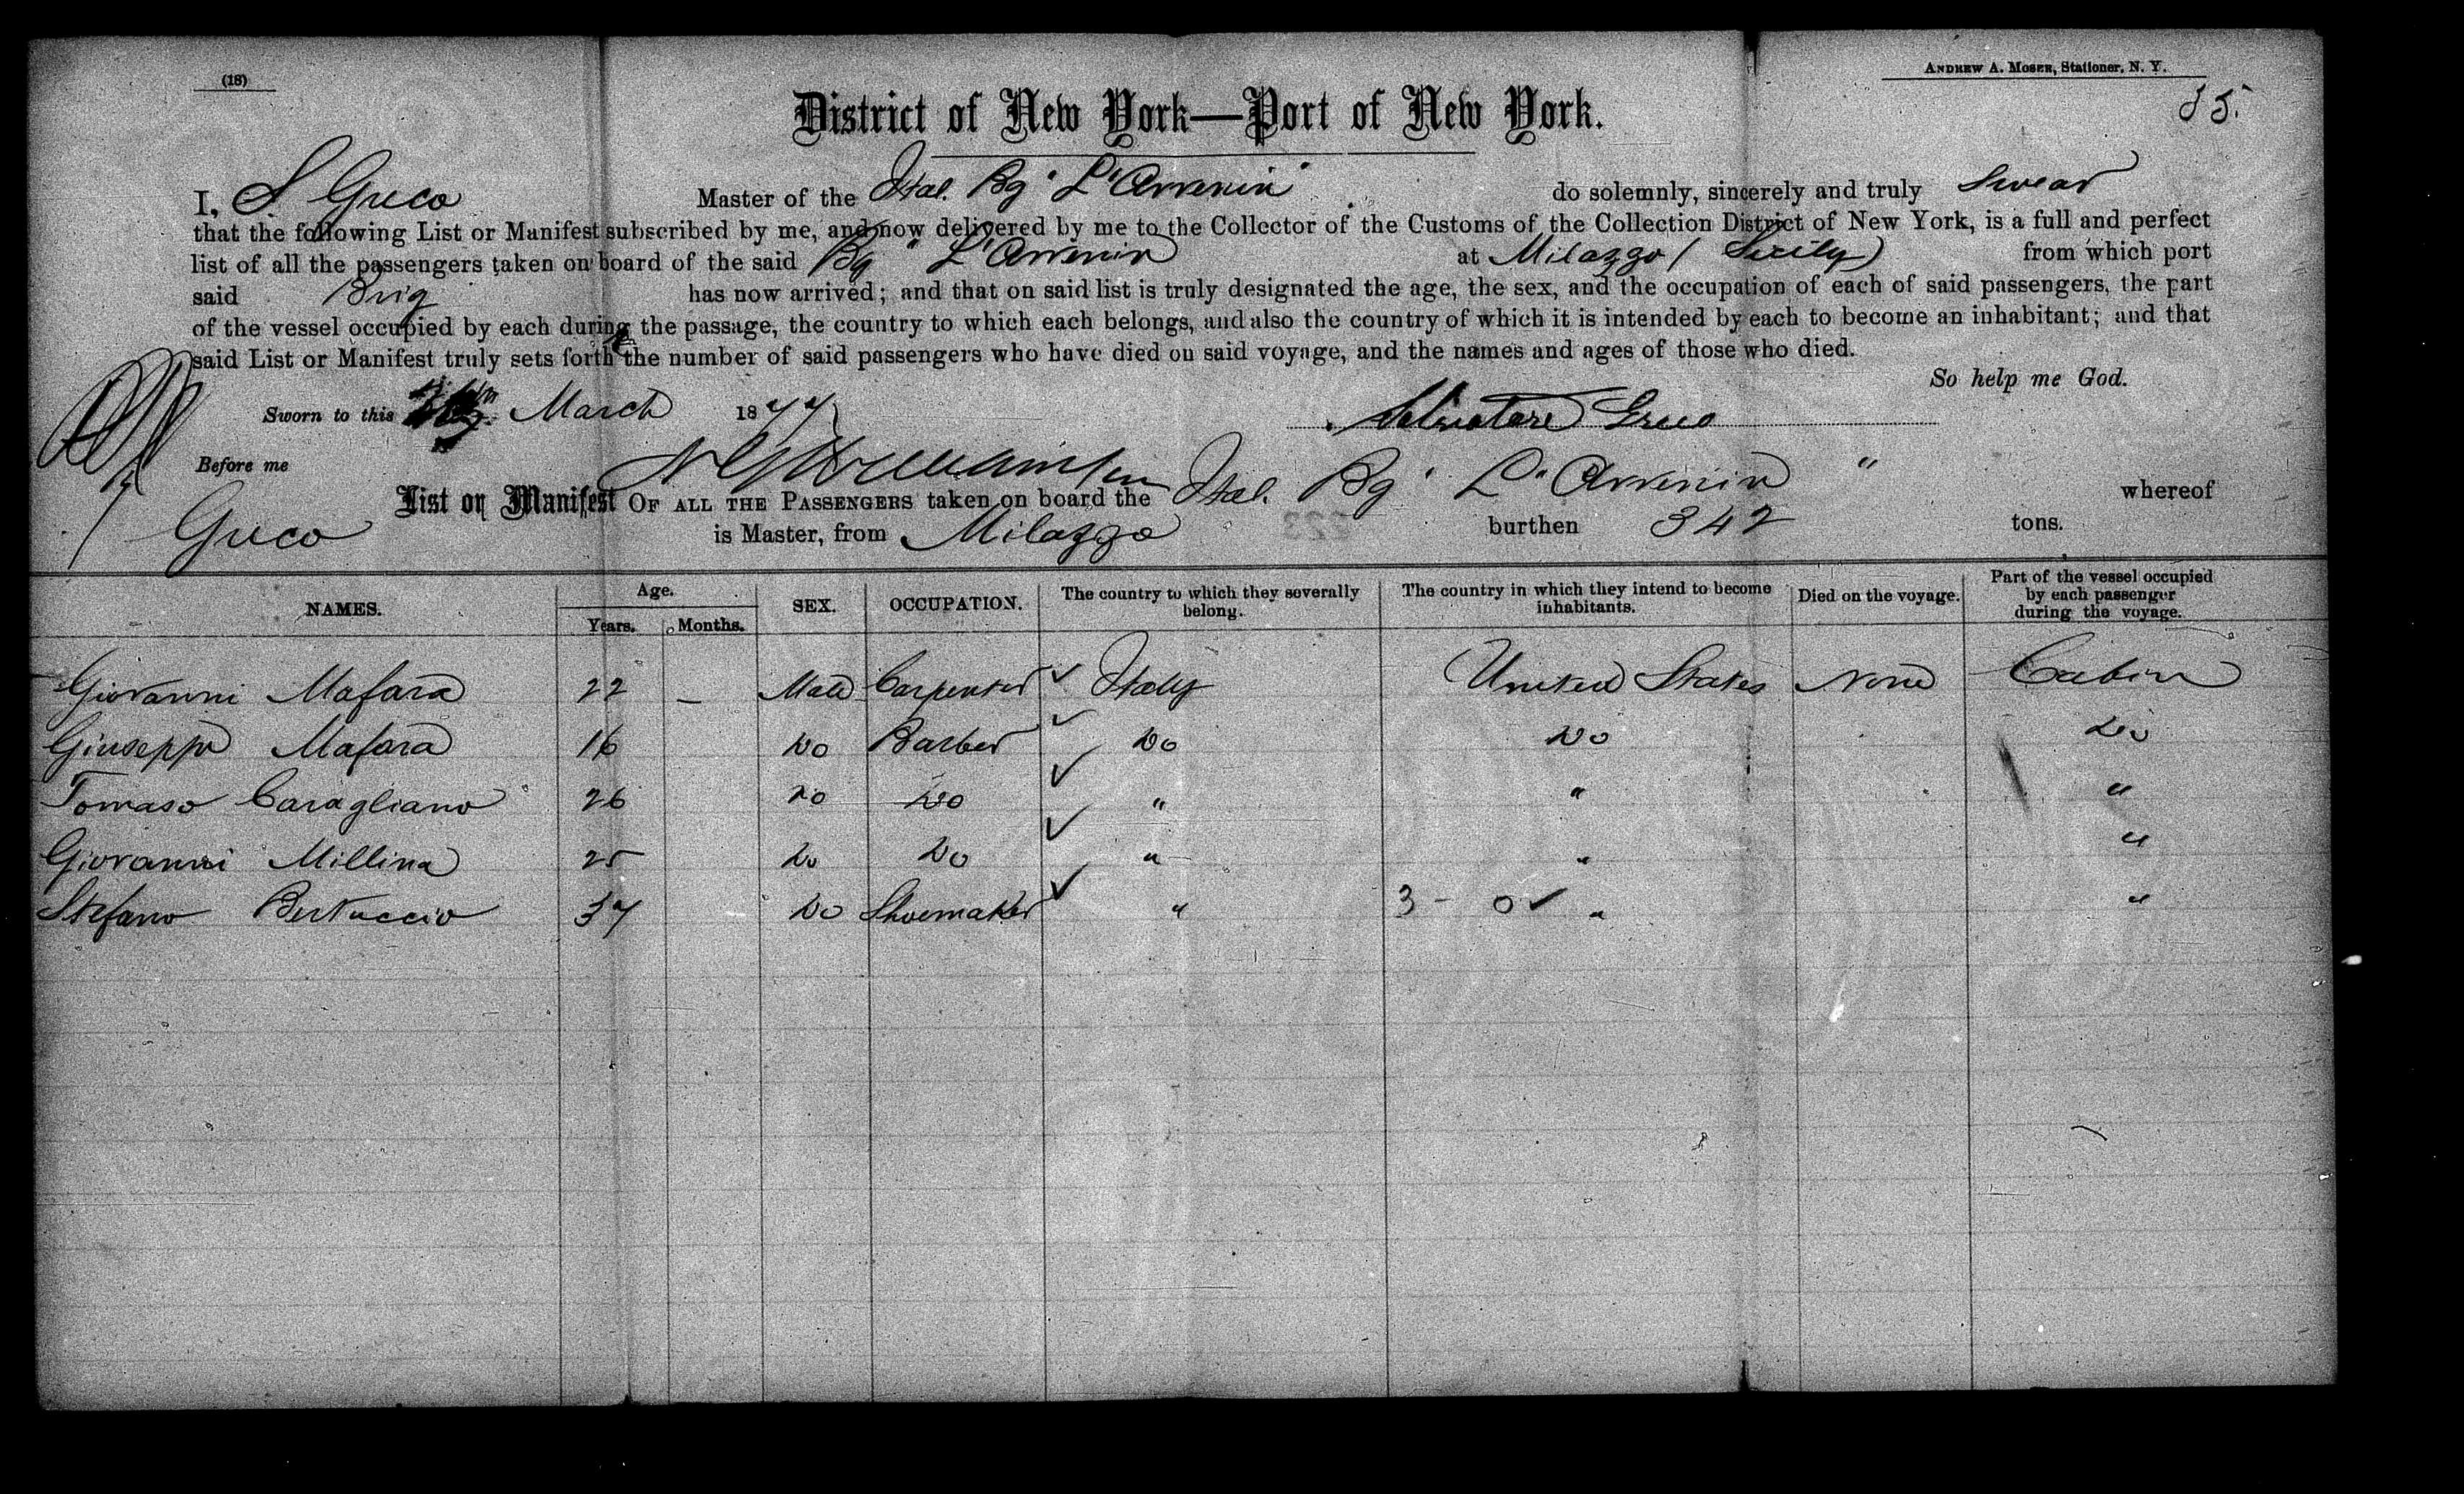 (18)
ANDREW A. MOSER, Stationer, N. Y.
85.
District of New York—Port of New York.
I, S. Greco Master of the Ital. Bg "L'Avvenire" do solemnly, sincerely and truly Swear
that the following List or Manifest subscribed by me, and now delivered by me to the Collector of the Customs of the Collection District of New York, is a full and perfect
list of all the passengers taken on board of the said Bg "L'Avvenire at Milazzo (Sicily) from which port
said Brig has now arrived; and that on said list is truly designated the age, the sex, and the occupation of each of said passengers, the part
of the vessel occupied by each during the passage, the country to which each belongs, and also the country of which it is intended by each to become an inhabitant; and that
said List or Manifest truly sets forth the number of said passengers who have died on said voyage, and the names and ages of those who died.
So help me God.
Sworn to this March 1877 Salvatore Greco
Before me
List or Manifest OF ALL THE PASSENGERS taken on board the Ital. Bg "L'Avvenire" whereof
Greco is Master, from Milazzo burthen 342 tons.
223
NAMES. Age. Years. Months. SEX. OCCUPATION. The country to which they severally belong. The country in which they intend to become inhabitants. Died on the voyage. Part of the vessel occupied by each passenger during the voyage.
Giovanni Mafara 22 — Male Carpenter ✓ Italy United States None Cabin
Giuseppe Mafara 16 Do Barber ✓ Do Do Do
Tomaso Caragliano 26 Do Do ✓ " " "
Giovanni Millina 25 Do Do ✓ " " "
Stefano Bertuccio 37 Do Shoemaker ✓ " 3 - 0 ✓ " "